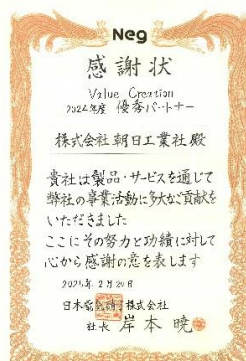 Neg
感謝状
Value Creation
2024年度 優秀パートナー
株式会社朝日工業社 殿
貴社は製品・サービスを通じて
弊社の事業活動に多大なご貢献を
いただきました
ここにその努力と功績に対して
心から感謝の意を表します
2025年2月20日
日本電気硝子株式会社
社長 岸本 暁